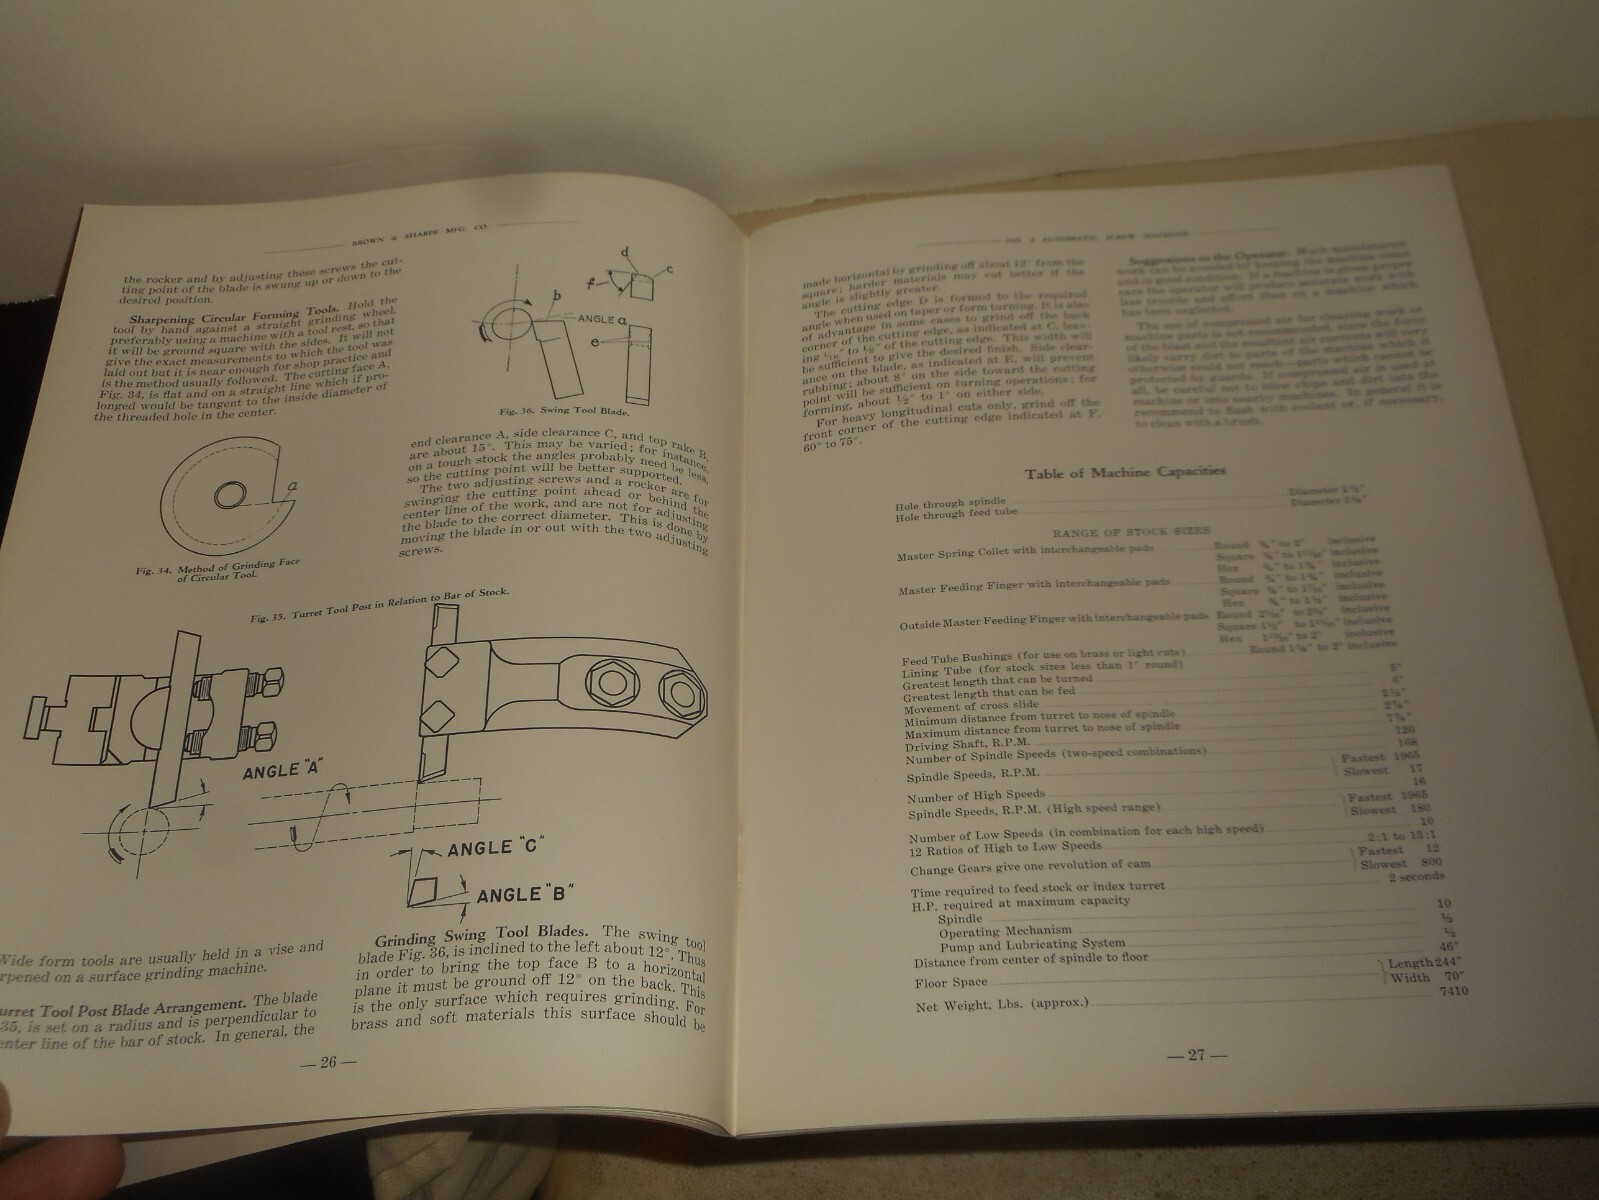 BROWN & SHARPE MFG. CO.
the rocker and by adjusting these screws the cut-
ting point of the blade is swung up or down to the
desired position.
Sharpening Circular Forming Tools. Hold the
tool by hand against a straight grinding wheel,
preferably using a machine with a tool rest, so that
it will be ground square with the sides. It will not
give the exact measurements to which the tool was
laid out but it is near enough for shop practice and
is the method usually followed. The cutting face A,
Fig. 34, is flat and on a straight line which if pro-
longed would be tangent to the inside diameter of
the threaded hole in the center.
a
Fig. 34. Method of Grinding Face
of Circular Tool.
d
c
f
b
ANGLE a
e
Fig. 36. Swing Tool Blade.
end clearance A, side clearance C, and top rake B,
are about 15°. This may be varied; for instance,
on a tough stock the angles probably need be less,
so the cutting point will be better supported.
The two adjusting screws and a rocker are for
swinging the cutting point ahead or behind the
center line of the work, and are not for adjusting
the blade to the correct diameter. This is done by
moving the blade in or out with the two adjusting
screws.
Fig. 35. Turret Tool Post in Relation to Bar of Stock.
ANGLE "A"
ANGLE "C"
ANGLE "B"
Wide form tools are usually held in a vise and
rpened on a surface grinding machine.
urret Tool Post Blade Arrangement. The blade
35, is set on a radius and is perpendicular to
enter line of the bar of stock. In general, the
Grinding Swing Tool Blades. The swing tool
blade Fig. 36, is inclined to the left about 12°. Thus
in order to bring the top face B to a horizontal
plane it must be ground off 12° on the back. This
is the only surface which requires grinding. For
brass and soft materials this surface should be
— 26 —
NO. 4 AUTOMATIC SCREW MACHINE
made horizontal by grinding off about 12° from the
square; harder materials may cut better if the
angle is slightly greater.
The cutting edge D is formed to the required
angle when used on taper or form turning. It is also
of advantage in some cases to grind off the back
corner of the cutting edge, as indicated at C, leav-
ing 1/16" to 1/8" of the cutting edge. This width will
be sufficient to give the desired finish. Side clear-
ance on the blade, as indicated at E, will prevent
rubbing; about 8° on the side toward the cutting
point will be sufficient on turning operations; for
forming, about ½° to 1° on either side.
For heavy longitudinal cuts only, grind off the
front corner of the cutting edge indicated at F,
60° to 75°.
Suggestions to the Operator. Much maintenance
work can be avoided by keeping the machine clean
and in good condition. If a machine is given proper
care the operator will produce accurate work with
less trouble and effort than on a machine which
has been neglected.
The use of compressed air for cleaning work or
machine parts is not recommended, since the force
of the blast and the resultant air currents will very
likely carry dirt to parts of the machine which it
otherwise could not reach—parts which cannot be
protected by guards. If compressed air is used at
all, be careful not to blow chips and dirt into the
machine or into nearby machines. In general it is
recommend to flush with coolant or, if necessary,
to clean with a brush.
Table of Machine Capacities
Hole through spindle Diameter
Hole through feed tube Diameter
RANGE OF STOCK SIZES
Master Spring Collet with interchangeable pads Round to 2" inclusive
Square to inclusive
Hex to inclusive
Master Feeding Finger with interchangeable pads Round to inclusive
Square to inclusive
Hex to inclusive
Outside Master Feeding Finger with interchangeable pads Round to inclusive
Square to inclusive
Hex to 2" inclusive
Feed Tube Bushings (for use on brass or light cuts) Round to 2" inclusive
Lining Tube (for stock sizes less than 1" round)
Greatest length that can be turned 5"
Greatest length that can be fed 6"
Movement of cross slide
Minimum distance from turret to nose of spindle
Maximum distance from turret to nose of spindle
Driving Shaft, R.P.M. 120
Number of Spindle Speeds (two-speed combinations) 168
Spindle Speeds, R.P.M. Fastest 1965
Slowest 17
Number of High Speeds 16
Spindle Speeds, R.P.M. (High speed range) Fastest 1965
Slowest 180
Number of Low Speeds (in combination for each high speed) 10
12 Ratios of High to Low Speeds 2:1 to 13:1
Change Gears give one revolution of cam Fastest 12
Slowest 800
Time required to feed stock or index turret 2 seconds
H.P. required at maximum capacity
Spindle 10
Operating Mechanism ½
Pump and Lubricating System ½
Distance from center of spindle to floor 46"
Floor Space Length 244"
Width 70"
Net Weight, Lbs. (approx.) 7410
— 27 —